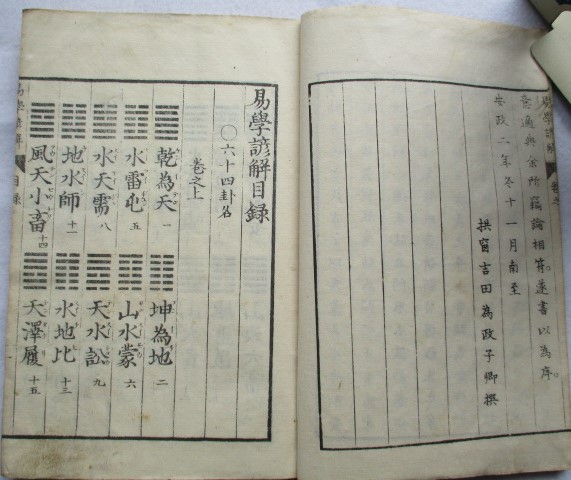 易學諺解
意適與余所竊論相符。遂書以為序。
安政二年冬十一月南至
拱宸吉田為政子卿撰
易學諺解目録
〇六十四卦名
卷之上
乾為天 一
坤為地 二
水雷屯 五
山水蒙 六
水天需 八
天水訟 九
地水師 十一
水地比 十三
風天小畜 十四
天澤履 十五
易學諺解 目録